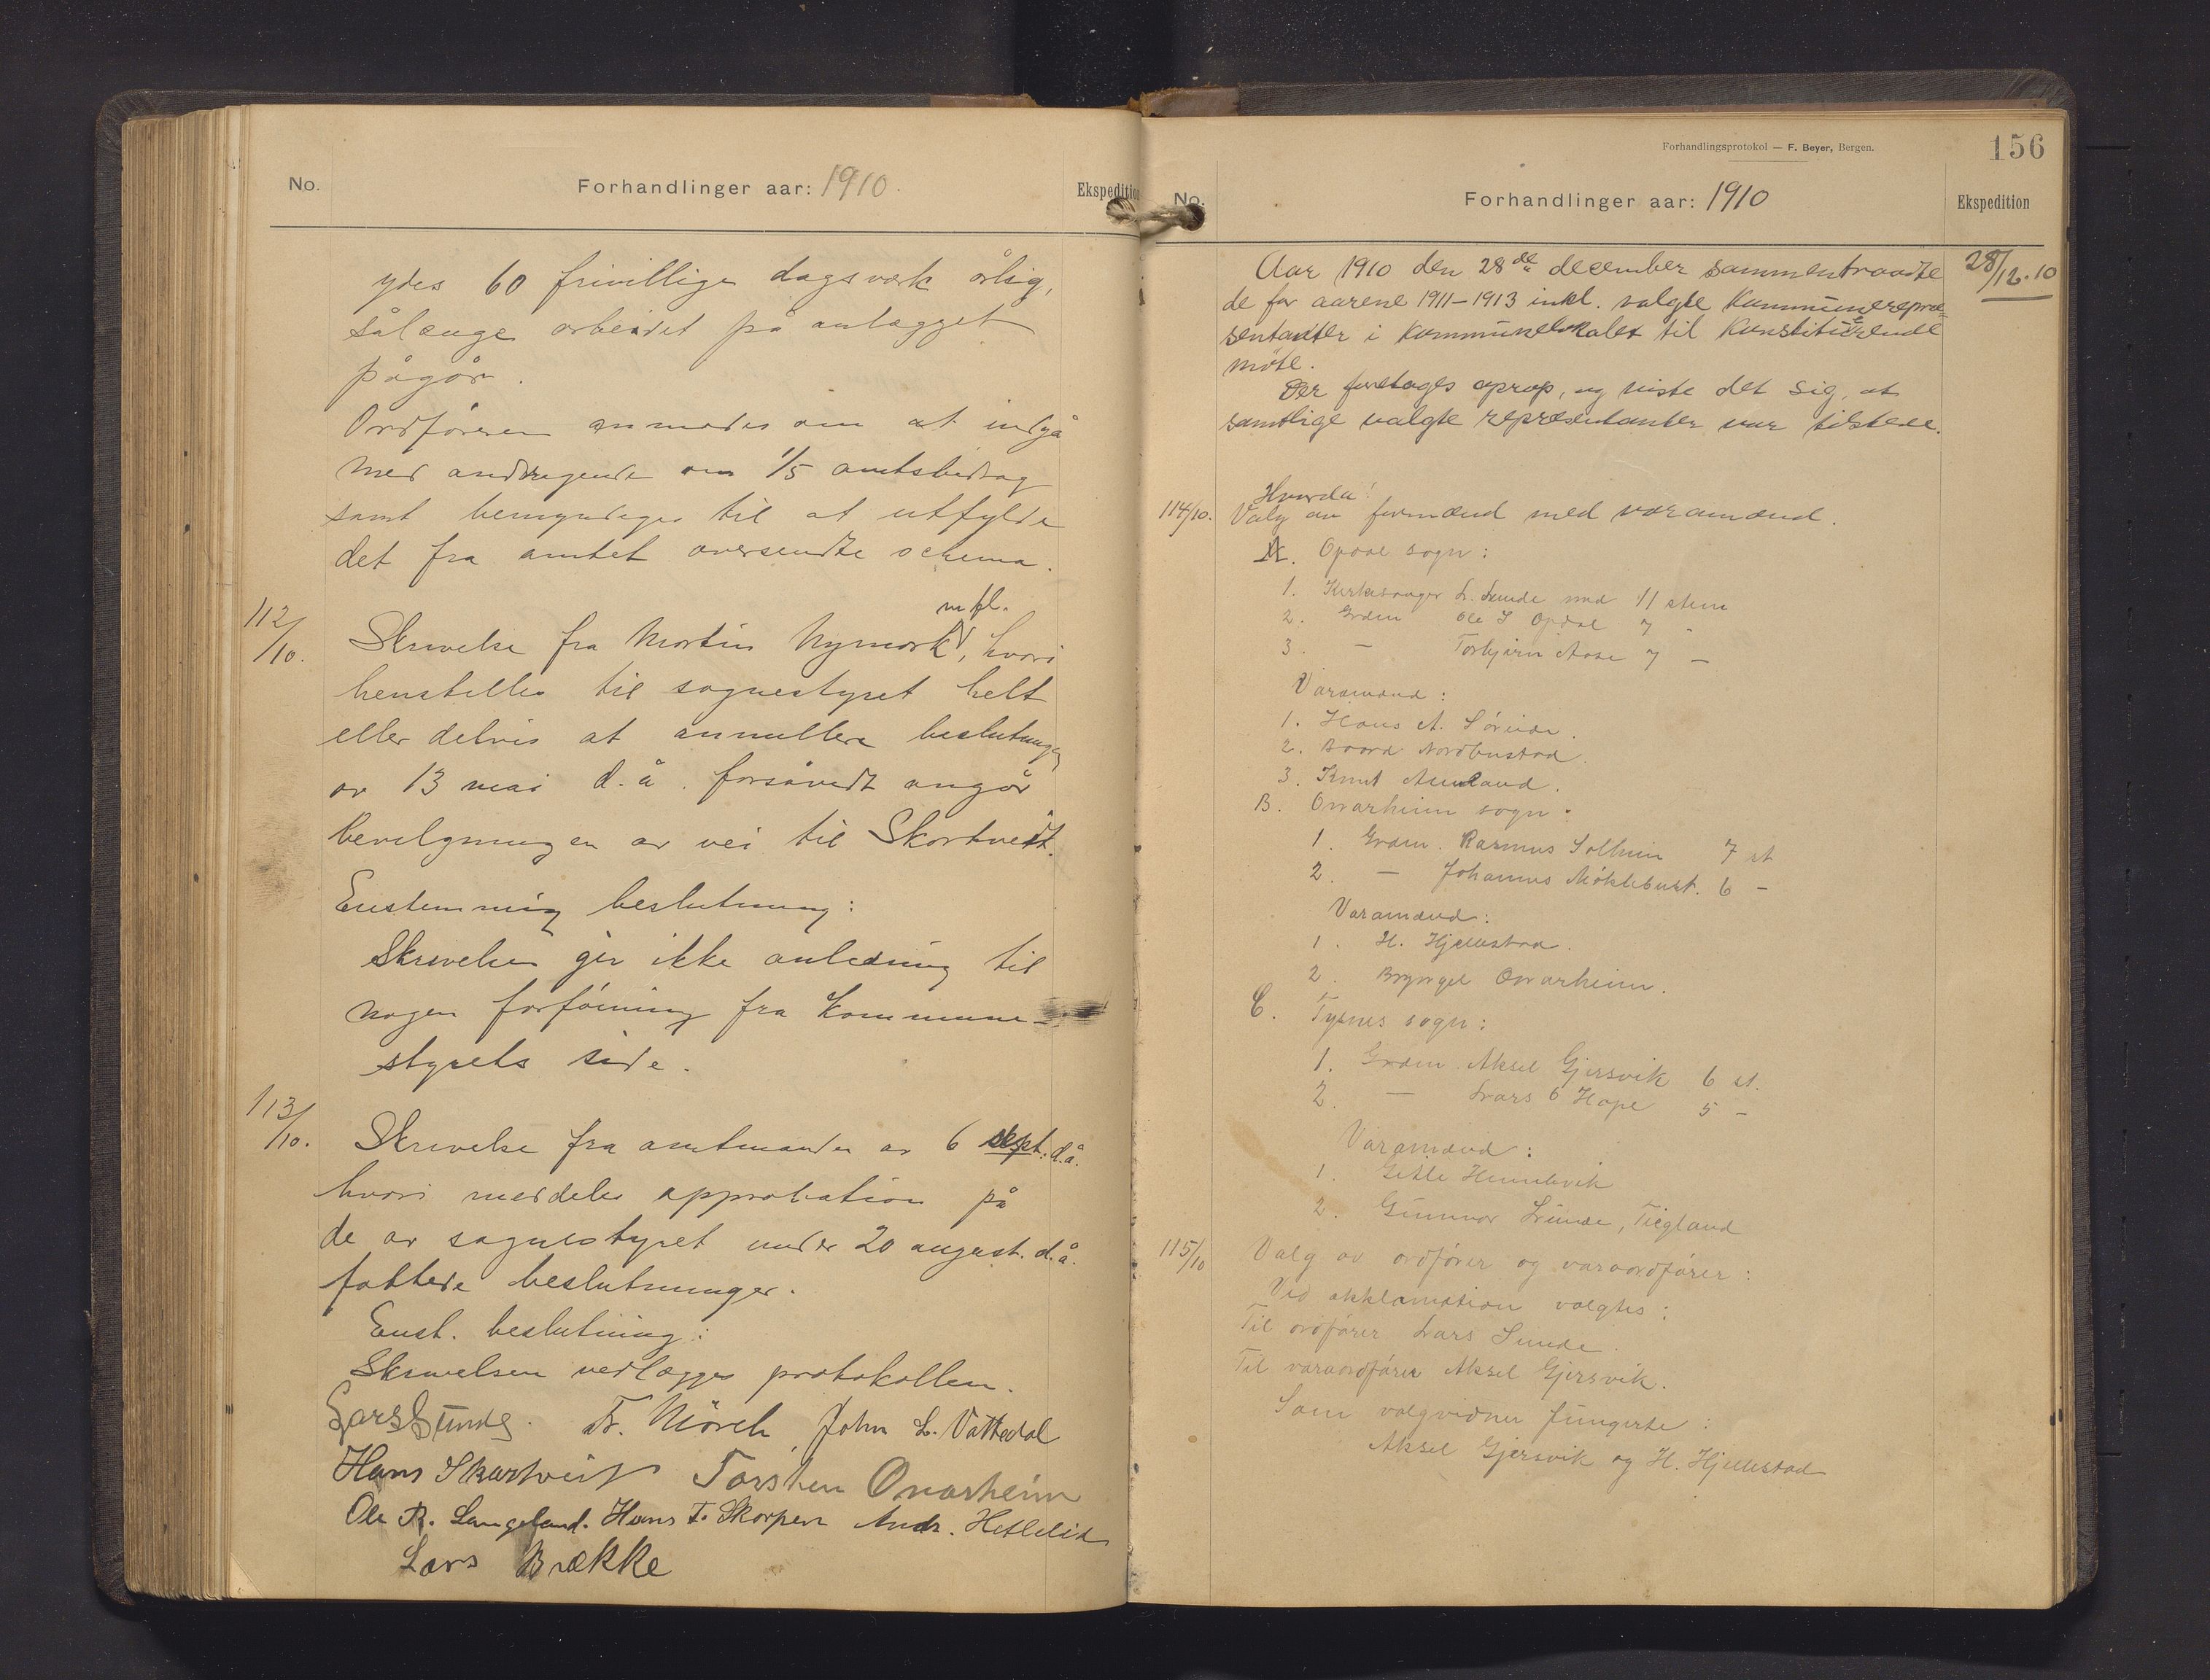 No.
Forhandlinger aar: 1910.
Ekspedition
ydes 60 frivillige dagsverk årlig,
sålænge arbeidet på anlægget
pågår.
Ordføreren anmodes om at indgå
med andragende om 1/5 amtsbidrag
samt bemyndiges til at utfylde
det fra amtet oversendte schema.
112/10.
Skrivelse fra Martin Nymark m fl., hvori
henstilles til sognestyret helt
eller delvis at annullere beslutningen
av 13 mai d.å. forsåvidt angår
bevilgningen av vei til Skartveit.
Enstemmig beslutning:
Skrivelsen gir ikke anledning til
nogen forføining fra kommune-
styrets side.
113/10.
Skrivelse fra amtmanden av 6 sept. d.å.
hvori meddeles approbation på
de av sognestyret under 20 august. d.å.
fattede beslutninger.
Enst. beslutning:
Skrivelsen vedlægges protokollen.
Lars Sunde. Fr. Mörch, John L. Vattedal
Hans Skartveit Torsten Onarheim
Ole R. Langeland. Hans T. Skorpen Andr. Hetlelid
Lars Brække
Forhandlingsprotokol — F. Beyer, Bergen.
156
No.
Forhandlinger aar: 1910
Ekspedition
Aar 1910 den 28de december sammentraadte
28/12.10
de for aarene 1911–1913 inkl. valgte kommunerepræ-
sentanter i kommunelokalet til konstituerende
møte.
Der foretoges oprop, og viste det sig, at
samtlige valgte repræsentanter var tilstede.
Hvorda:
114/10.
Valg av formænd med varamænd.
A. Opdal sogn:
1. Kirkesanger L. Sunde med 11 stem
2. Grdm Ole J Opdal 7 "
3. — Torbjørn Aase 7 —
Varamænd:
1. Hans A. Søreide.
2. Baard Nordbustad.
3. Knut Aumland.
B. Onarheim sogn:
1. Grdm. Rasmus Solheim 7 st
2. — Johannes Møklebust. 6 —
Varamænd:
1. H. Hjellestad.
2. Brynjel Onarheim.
C. Tysnes sogn:
1. Grdm. Aksel Gjersvik 6 st.
2. — Lars O Hope 5 —
Varamænd:
1. Gitle Hennevik
2. Gunnar Sunde, Tiegland
115/10
Valg av ordfører og varaordfører:
Ved akklamation valgtes:
Til ordfører Lars Sunde.
Til varaordfører Aksel Gjersvik.
Som valgvidner fungerte:
Aksel Gjersvik og H. Hjellestad